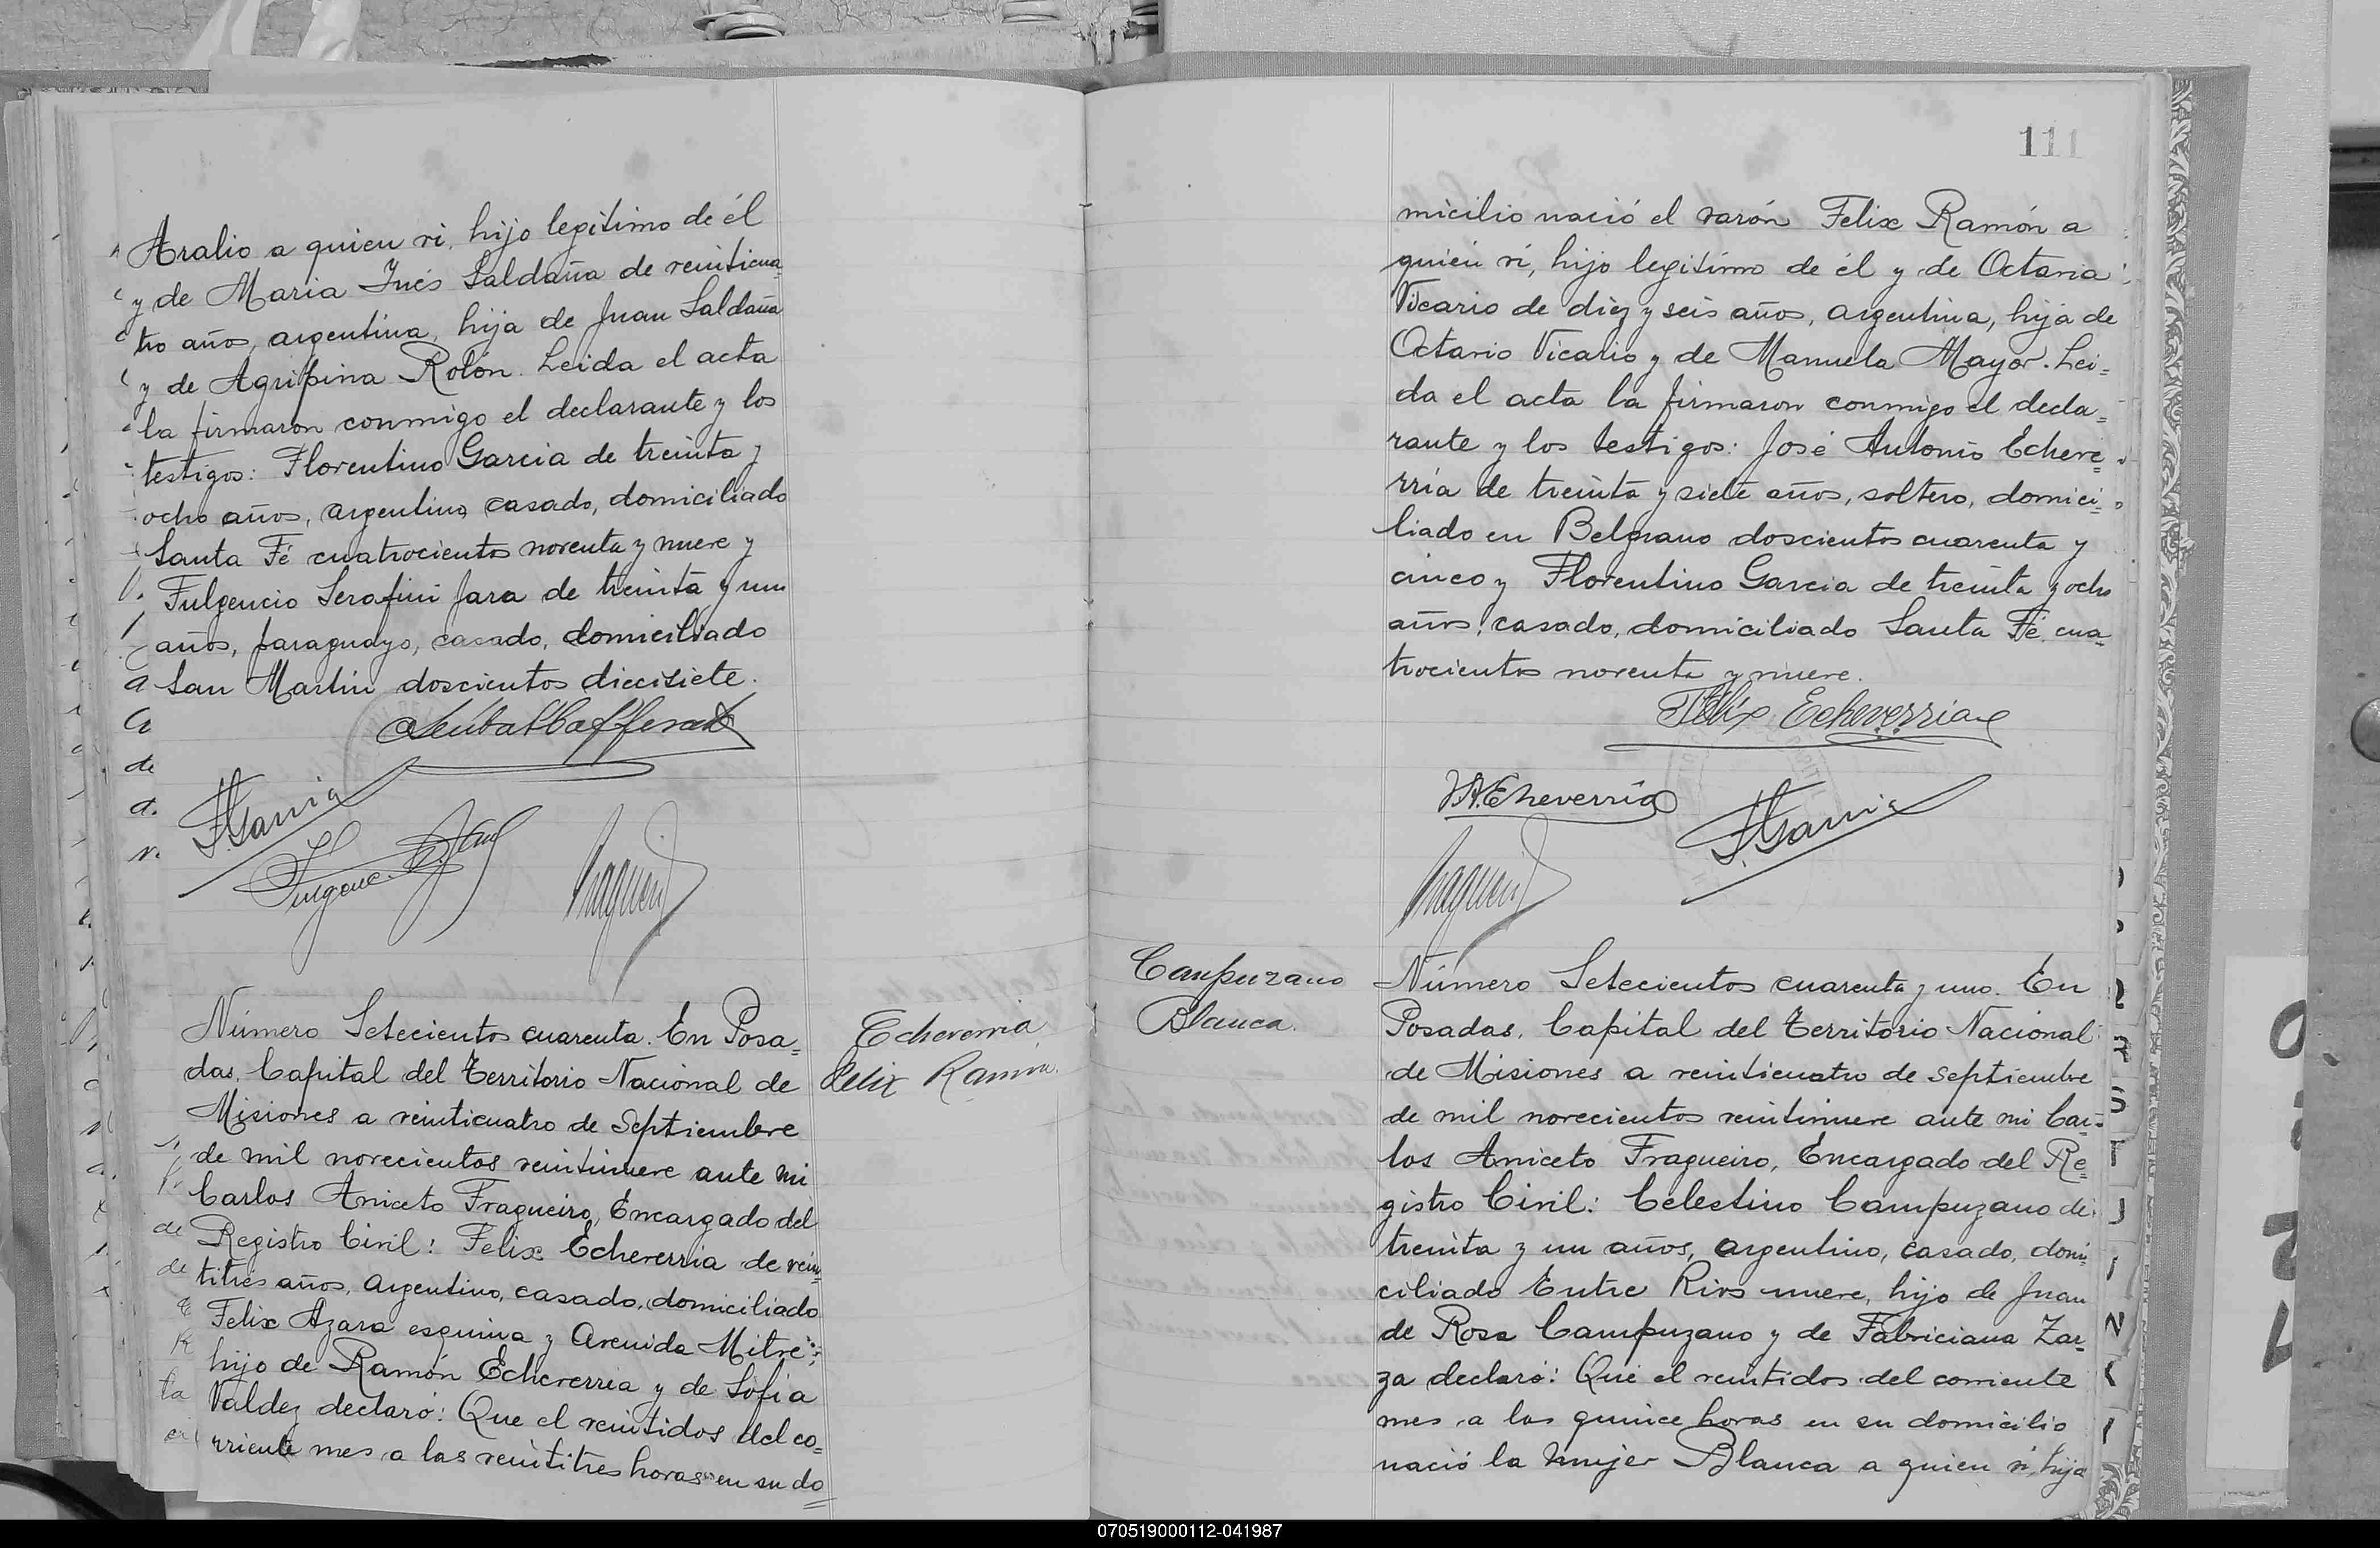 Aralio a quien vi, hijo legitimo de él
y de Maria Inés Saldaña de veinticua=
tro años, argentina, hija de Juan Saldaña
y de Agripina Rolón. Leida el acta
la firmaron conmigo el declarante y los
testigos: Florentino Garcia de treinta y
ocho años, argentino, casado, domiciliado
Santa Fé cuatrocientos noventa y nueve y
Fulgencio Serafini Jara de treinta y un
años, paraguayo, casado, domiciliado
San Martin doscientos diecisiete.
F. Garcia
Número Setecientos cuarenta. En Posa=
das, Capital del Territorio Nacional de
Misiones a veinticuatro de Septiembre
de mil novecientos veintinueve ante mi
Carlos Aniceto Fragueiro, Encargado del
Registro Civil: Felix Echeverria de vein=
titrés años, argentino, casado, domiciliado
Felix Azara esquina y Avenida Mitre
hijo de Ramón Echeverria y de Sofia
Valdez declaró: Que el veintidos del co=
rriente mes a las veintitres horas en su do=
Echeverria,
Felix Ramón.
111
micilio nació el varón Felix Ramón a
quien vi, hijo legitimo de él y de Octavia
Vicario de diez y seis años, argentina, hija de
Octavio Vicario y de Manuela Mayor. Lei=
da el acta la firmaron conmigo el decla=
rante y los testigos: José Antonio Echeve=
rria de treinta y siete años, soltero, domici=
liado en Belgrano doscientos cuarenta y
cinco y Florentino Garcia de treinta y ocho
años, casado, domiciliado Santa Fé cua=
trocientos noventa y nueve.
Félix Echeverria
J.A. Echeverria
F. Garcia
Campuzano
Blanca.
Número Setecientos cuarenta y uno. En
Posadas, Capital del Territorio Nacional
de Misiones a veinticuatro de Septiembre
de mil novecientos veintinueve ante mi Car=
los Aniceto Fragueiro, Encargado del Re=
gistro Civil: Celestino Campuzano de
treinta y un años, argentino, casado, domi=
ciliado Entre Rios nueve, hijo de Juan
de Rosa Campuzano y de Fabriciana Zar=
za declaró: Que el veintidos del corriente
mes a las quince horas en su domicilio
nació la mujer Blanca a quien vi, hija
070519000112-041987